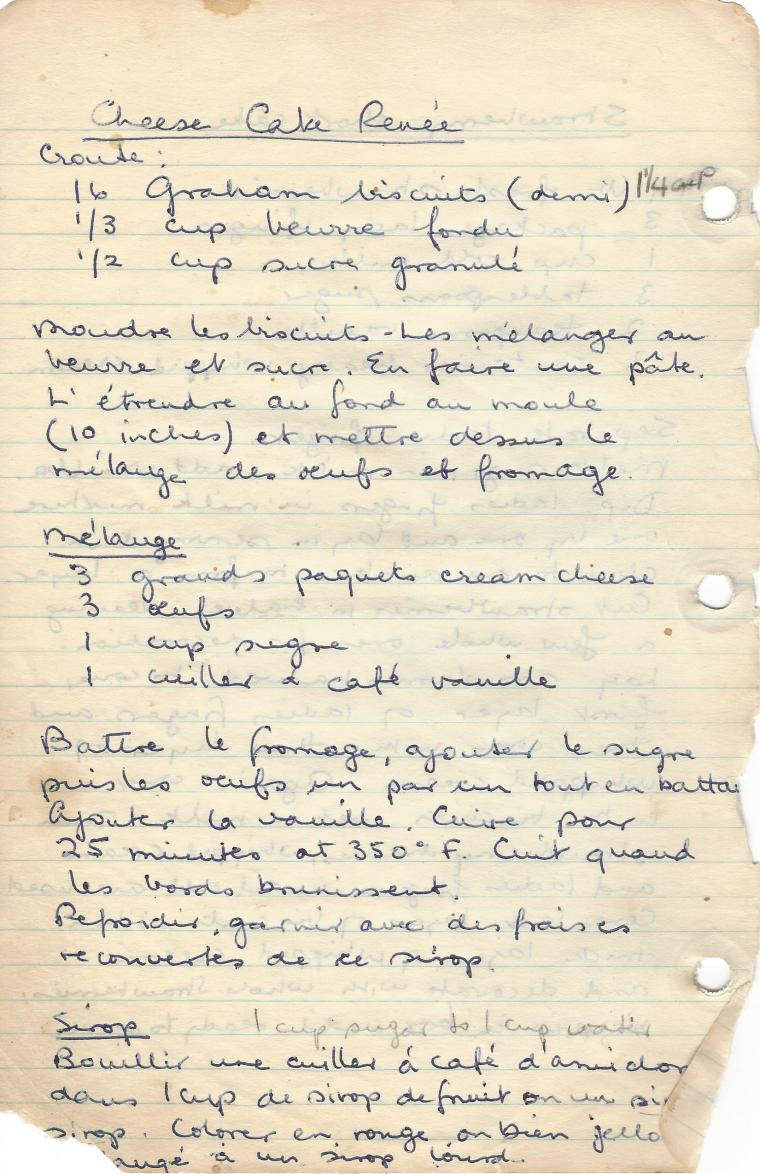 Cheese Cake Renée
Croute :
16 Graham biscuits (demi) 1 1/4 cup
1/3 cup beurre fondu
1/2 cup sucre granulé
Moudre les biscuits - Les mélanger au
beurre et sucre. En faire une pâte.
L'étrendre au fond au moule
(10 inches) et mettre dessus le
mélange des œufs et fromage.
Mélange
3 grands paquets cream cheese
3 œufs
1 cup sugre
1 cuiller à café vanille
Battre le fromage, ajouter le sugre
puis les œufs un par un tout en batta
Ajouter la vanille. Cuire pour
25 minutes at 350° F. Cuit quand
les bords brunissent.
Refroidir, garnir avec des fraises
recouvertes de ce sirop.
Sirop 1 cup sugar to 1 cup water
Bouillir une cuiller à café d'amidon
dans 1 cup de sirop de fruit ou un si
sirop. Colorer en rouge ou bien jello
à un sirop lourd.